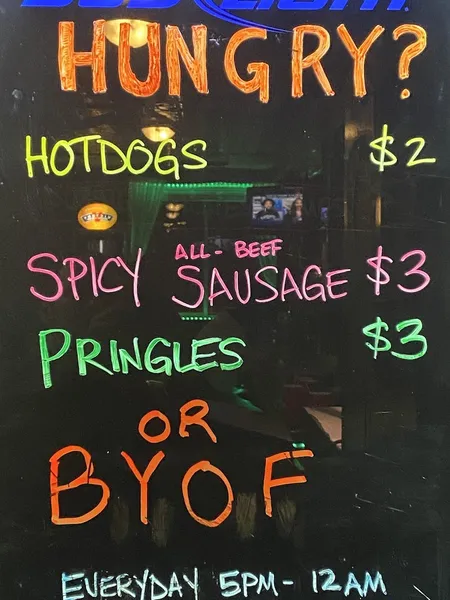 BUD LIGHT
HUNGRY?
HOTDOGS $2
ALL-BEEF
SPICY SAUSAGE $3
PRINGLES $3
OR
BYOF
EVERYDAY 5PM - 12AM